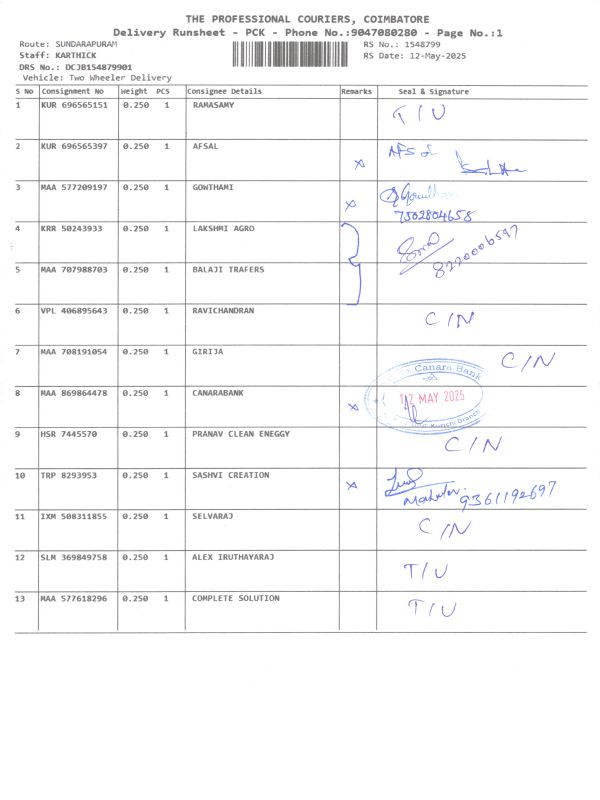 THE PROFESSIONAL COURIERS, COIMBATORE
Delivery Runsheet - PCK - Phone No.:9047080280 - Page No.:1
Route: SUNDARAPURAM RS No.: 1548799
Staff: KARTHICK RS Date: 12-May-2025
DRS No.: DCJB154879901
Vehicle: Two Wheeler Delivery
S No Consignment No Weight PCS Consignee Details Remarks Seal & Signature
1 KUR 696565151 0.250 1 RAMASAMY T/U
2 KUR 696565397 0.250 1 AFSAL AFSal
3 MAA 577209197 0.250 1 GOWTHAMI Gowthami
7502804658
4 KRR 50243933 0.250 1 LAKSHMI AGRO 8220006597
5 MAA 707988703 0.250 1 BALAJI TRAFERS
6 VPL 406895643 0.250 1 RAVICHANDRAN C/N
7 MAA 708191054 0.250 1 GIRIJA C/N
Canara Bank
8 MAA 869864478 0.250 1 CANARABANK 12 MAY 2025
Kurichi Branch
9 HSR 7445570 0.250 1 PRANAV CLEAN ENEGGY C/N
10 TRP 8293953 0.250 1 SASHVI CREATION 9361192697
11 IXM 508311855 0.250 1 SELVARAJ C/N
12 SLM 369849758 0.250 1 ALEX IRUTHAYARAJ T/U
13 MAA 577618296 0.250 1 COMPLETE SOLUTION T/U